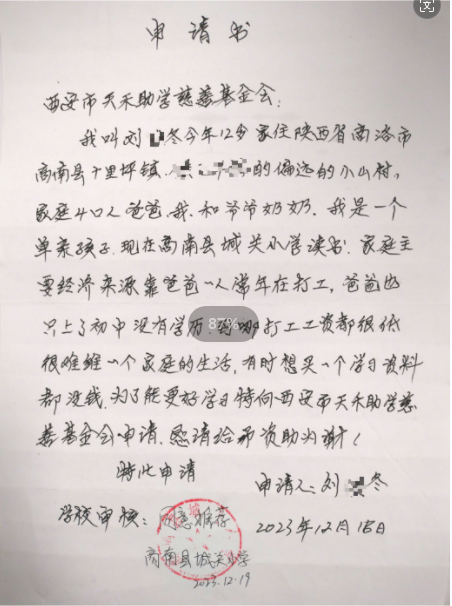 申请书
西安市天禾助学慈善基金会：
我叫刘冬今年12岁家住陕西省商洛市
商南县十里坪镇的偏远的小山村，
家庭4口人爸爸、我、和爷爷奶奶。我是一个
单亲孩子.现在商南县城关小学读书.家庭主
要经济来源靠爸爸一人常年在打工，爸爸也
只上了初中没有学历 87% 打工工资都很低
很难维一个家庭的生活，有时想买一个学习资料
都没钱.为了能更好学习特向西安市天禾助学慈
善基金会申请.恳请给予资助为谢！
特此申请
申请人：刘冬
学校审核：同意推荐
2023年12月18日
商南县城关小学
2023.12.19